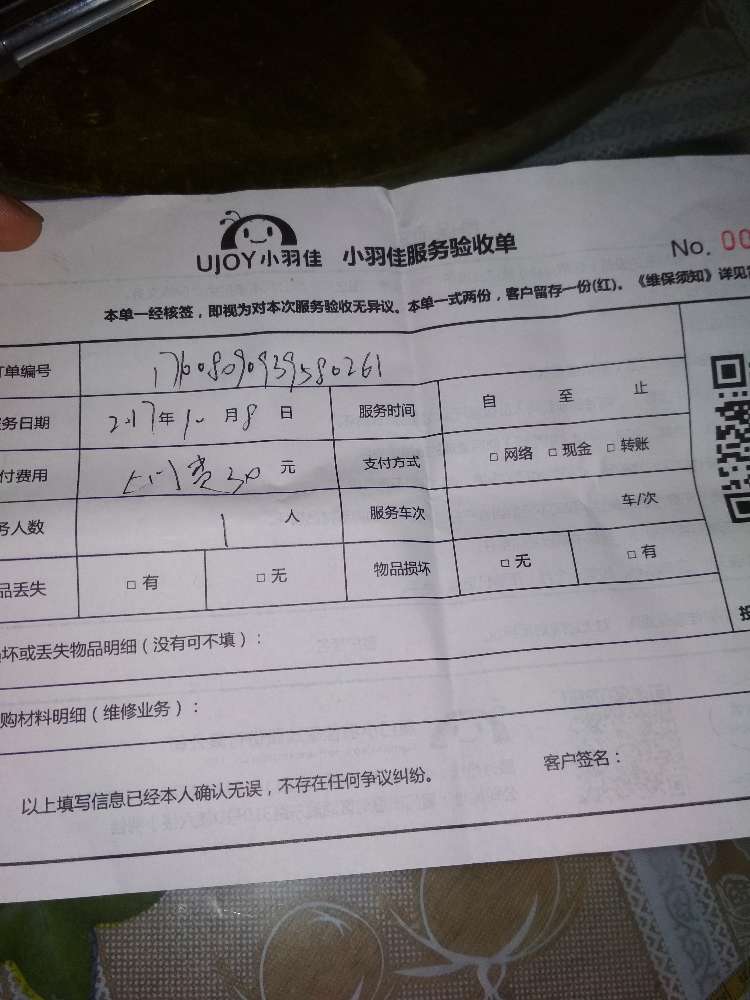 UJOY小羽佳 小羽佳服务验收单 No. 00
本单一经核签，即视为对本次服务验收无异议。本单一式两份，客户留存一份(红)。《维保须知》详见
订单编号 17608090939580261
服务日期 2017年10月8日 服务时间 自 至 止
付费用 上门费30元 支付方式 □ 网络 □ 现金 □ 转账
务人数 1 人 服务车次 车/次
品丢失 □ 有 □ 无 物品损坏 □ 无 □ 有
坏或丢失物品明细（没有可不填）：
购材料明细（维修业务）：
以上填写信息已经本人确认无误，不存在任何争议纠纷。 客户签名：